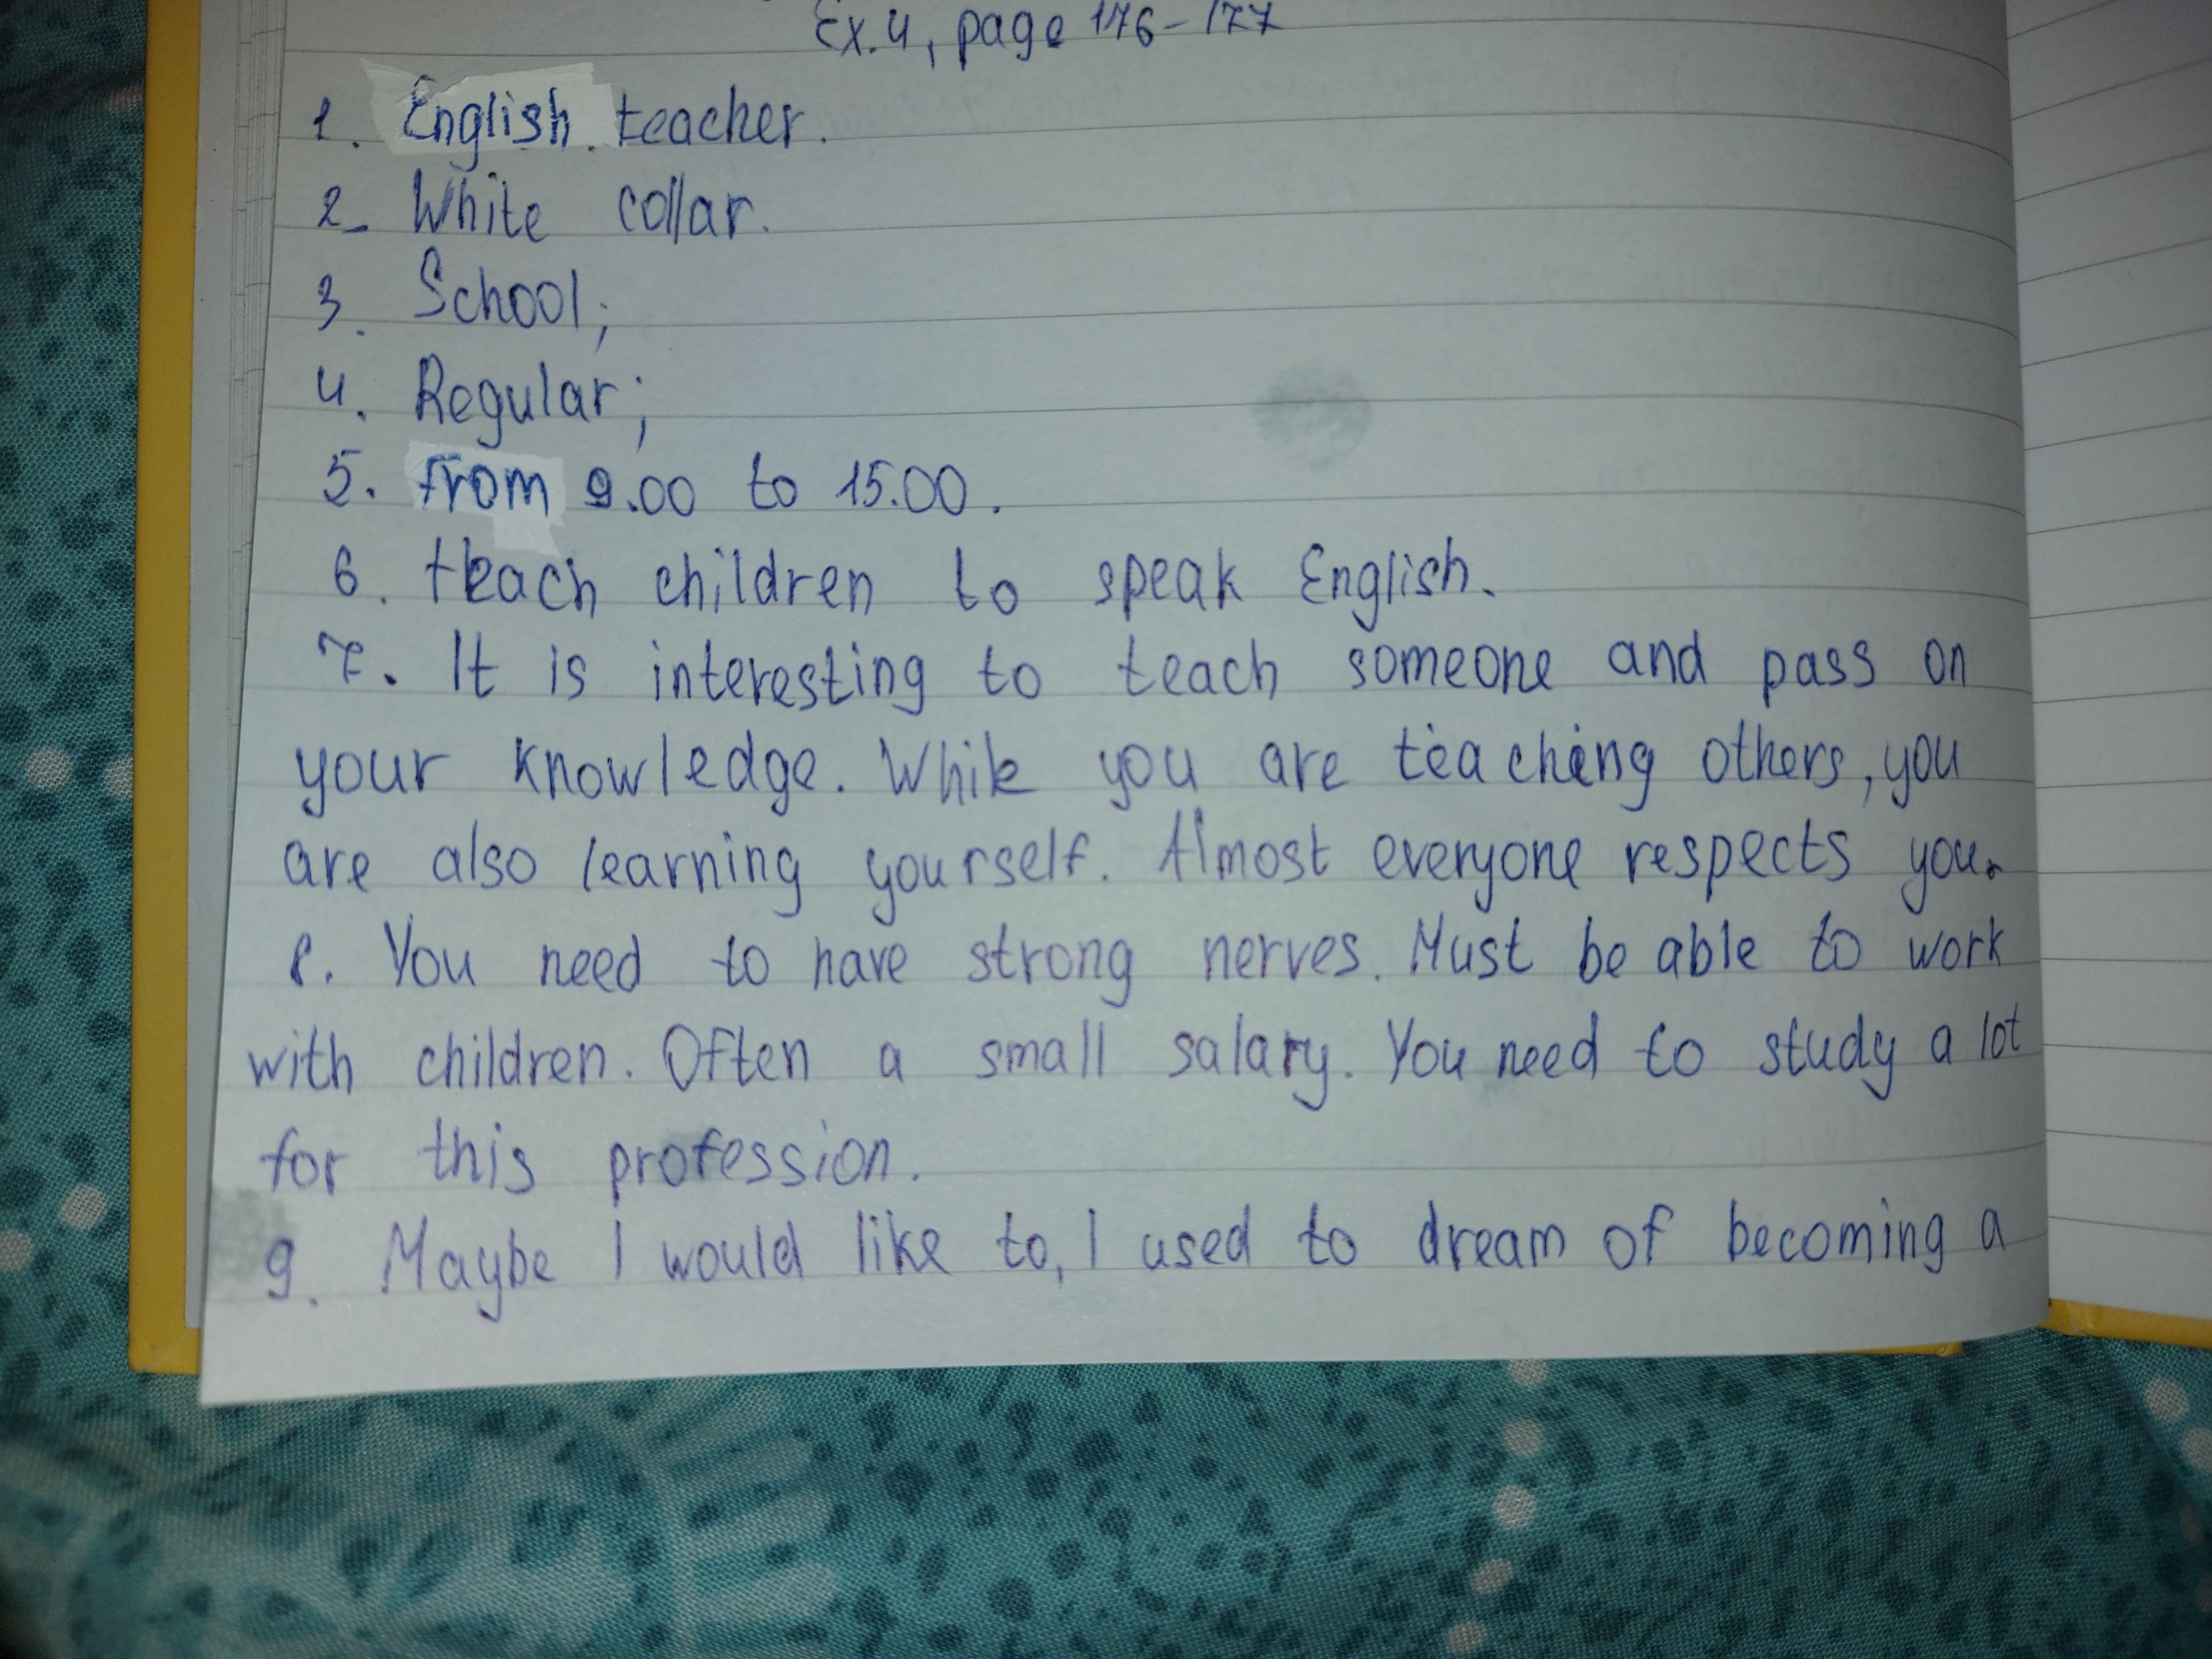 Ex.4, page 176-177
1. English teacher.
2. White collar.
3. School;
4. Regular;
5. From 9.00 to 15.00.
6. teach children to speak English.
7. It is interesting to teach someone and pass on
your knowledge. While you are teaching others, you
are also learning yourself. Almost everyone respects you.
8. You need to have strong nerves. Must be able to work
with children. Often a small salary. You need to study a lot
for this profession.
9. Maybe I would like to, I used to dream of becoming a